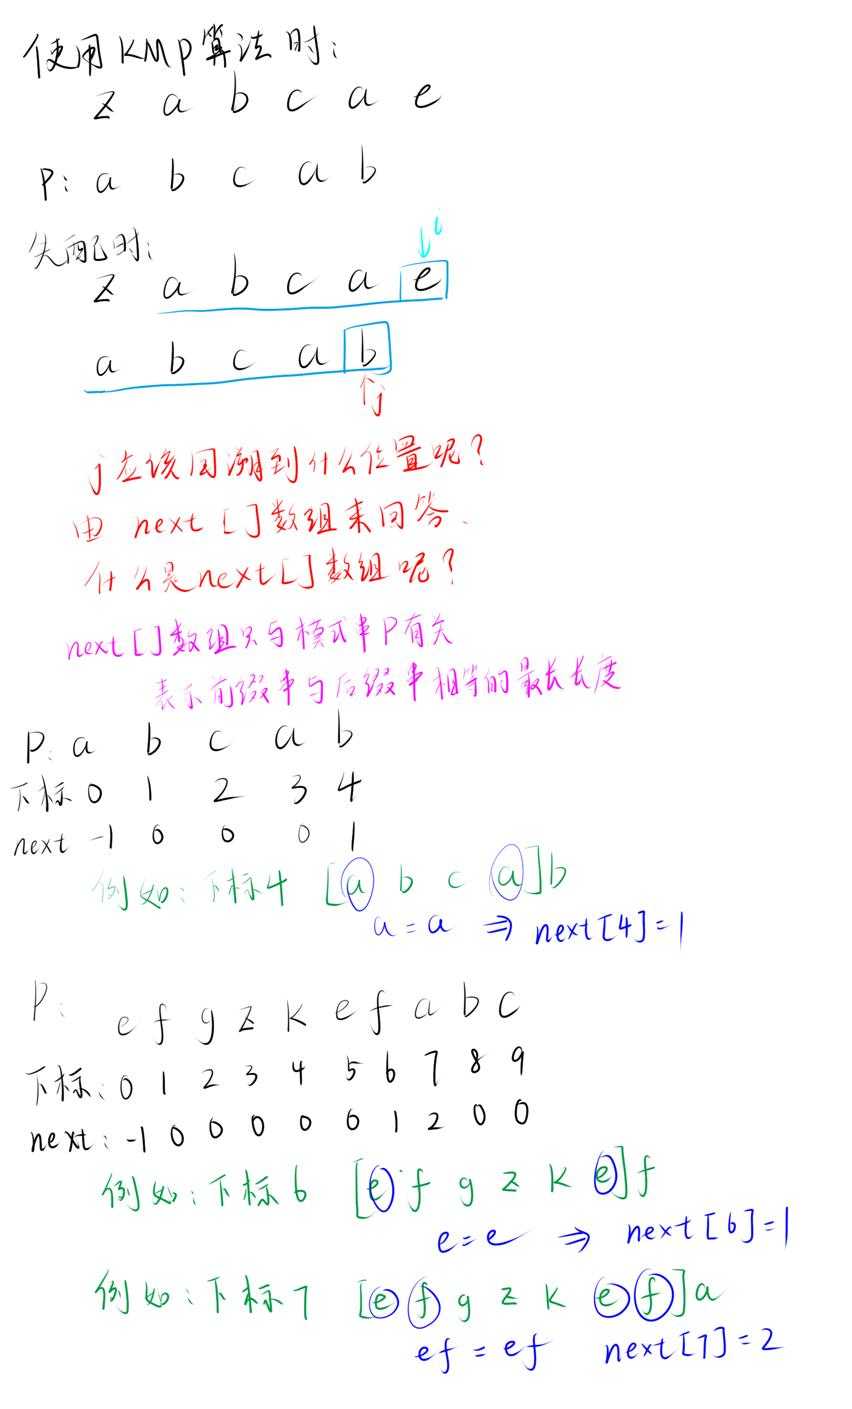 使用KMP算法时:
z a b c a e
P: a b c a b
失配时:
i
z a b c a e
a b c a b
j
j应该回溯到什么位置呢?
由 next []数组来回答.
什么是next[]数组呢?
next[]数组只与模式串P有关
表示前缀串与后缀串相等的最长长度
P: a b c a b
下标 0 1 2 3 4
next -1 0 0 0 1
例如: 下标4 [a b c a]b
a = a ⇒ next[4]=1
P: e f g z k e f a b c
下标: 0 1 2 3 4 5 6 7 8 9
next: -1 0 0 0 0 0 1 2 0 0
例如: 下标6 [e f g z k e]f
e = e ⇒ next[6]=1
例如: 下标7 [e f g z k e f]a
ef = ef next[7]=2